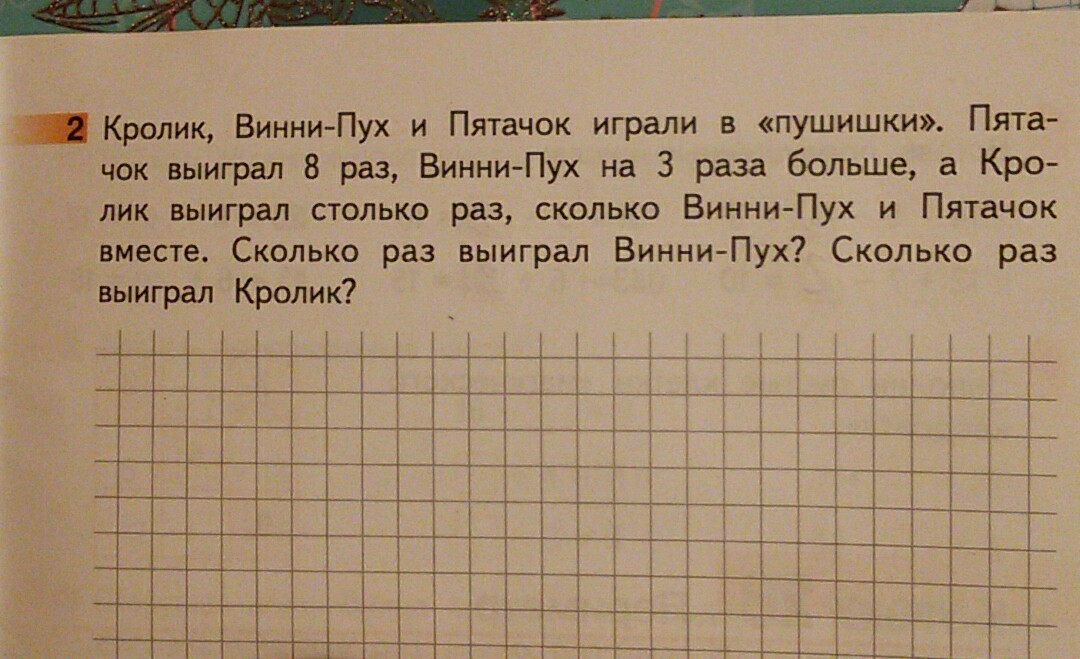 2 Кролик, Винни-Пух и Пятачок играли в «пушишки». Пята-
чок выиграл 8 раз, Винни-Пух на 3 раза больше, а Кро-
лик выиграл столько раз, сколько Винни-Пух и Пятачок
вместе. Сколько раз выиграл Винни-Пух? Сколько раз
выиграл Кролик?